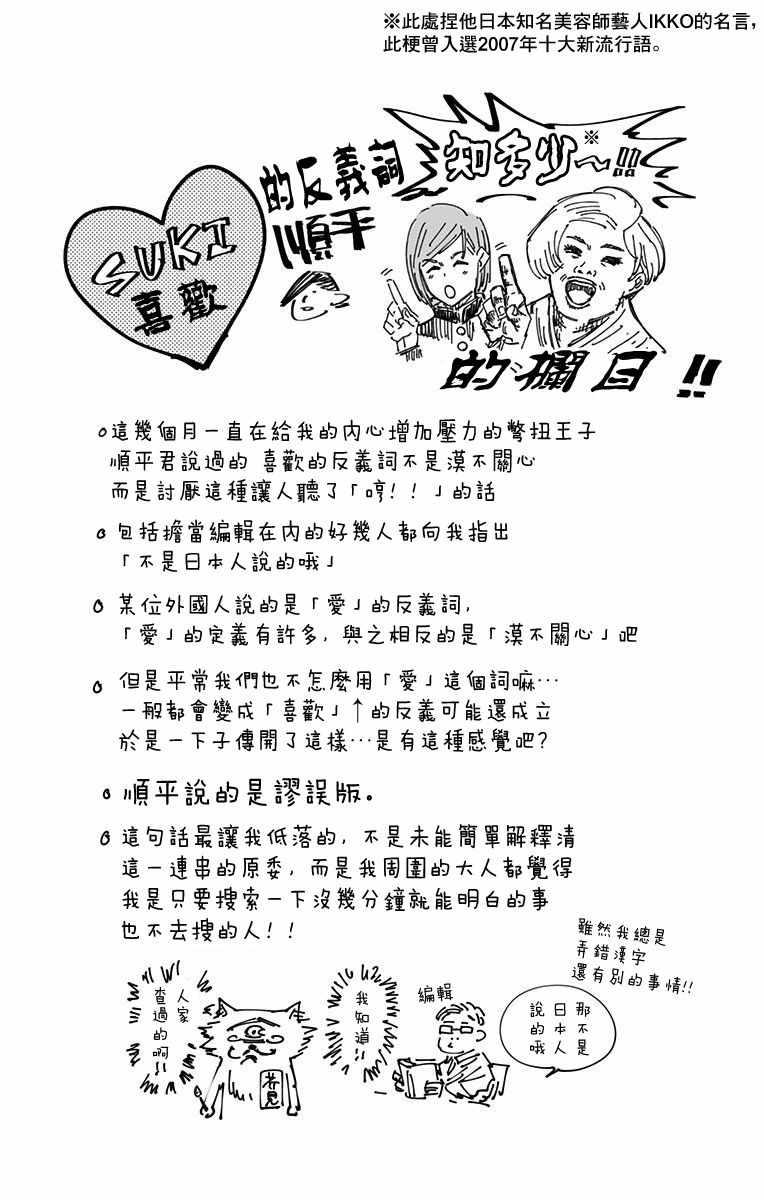 ※此處捏他日本知名美容師藝人IKKO的名言，
此梗曾入選2007年十大新流行語。
SUKI
喜歡
的反義詞
知多少～!!!
※
順平
的欄目!!
這幾個月一直在給我的內心增加壓力的彆扭王子
順平君說過的 喜歡的反義詞不是漠不關心
而是討厭這種讓人聽了「哼!!」的話
包括擔當編輯在內的好幾人都向我指出
「不是日本人說的哦」
某位外國人說的是「愛」的反義詞,
「愛」的定義有許多, 與之相反的是「漠不關心」吧
但是平常我們也不怎麼用「愛」這個詞嘛…
一般都會變成「喜歡」↑的反義可能還成立
於是一下子傳開了這樣…是有這種感覺吧?
順平說的是謬誤版。
這句話最讓我低落的, 不是未能簡單解釋清
這一連串的原委, 而是我周圍的大人都覺得
我是只要搜索一下沒幾分鐘就能明白的事
也不去搜的人!!
雖然我總是
弄錯漢字
還有別的事情!!
人家
查過的啊!!
芥見
我知道!!
編輯
那不是
日本人
說的哦